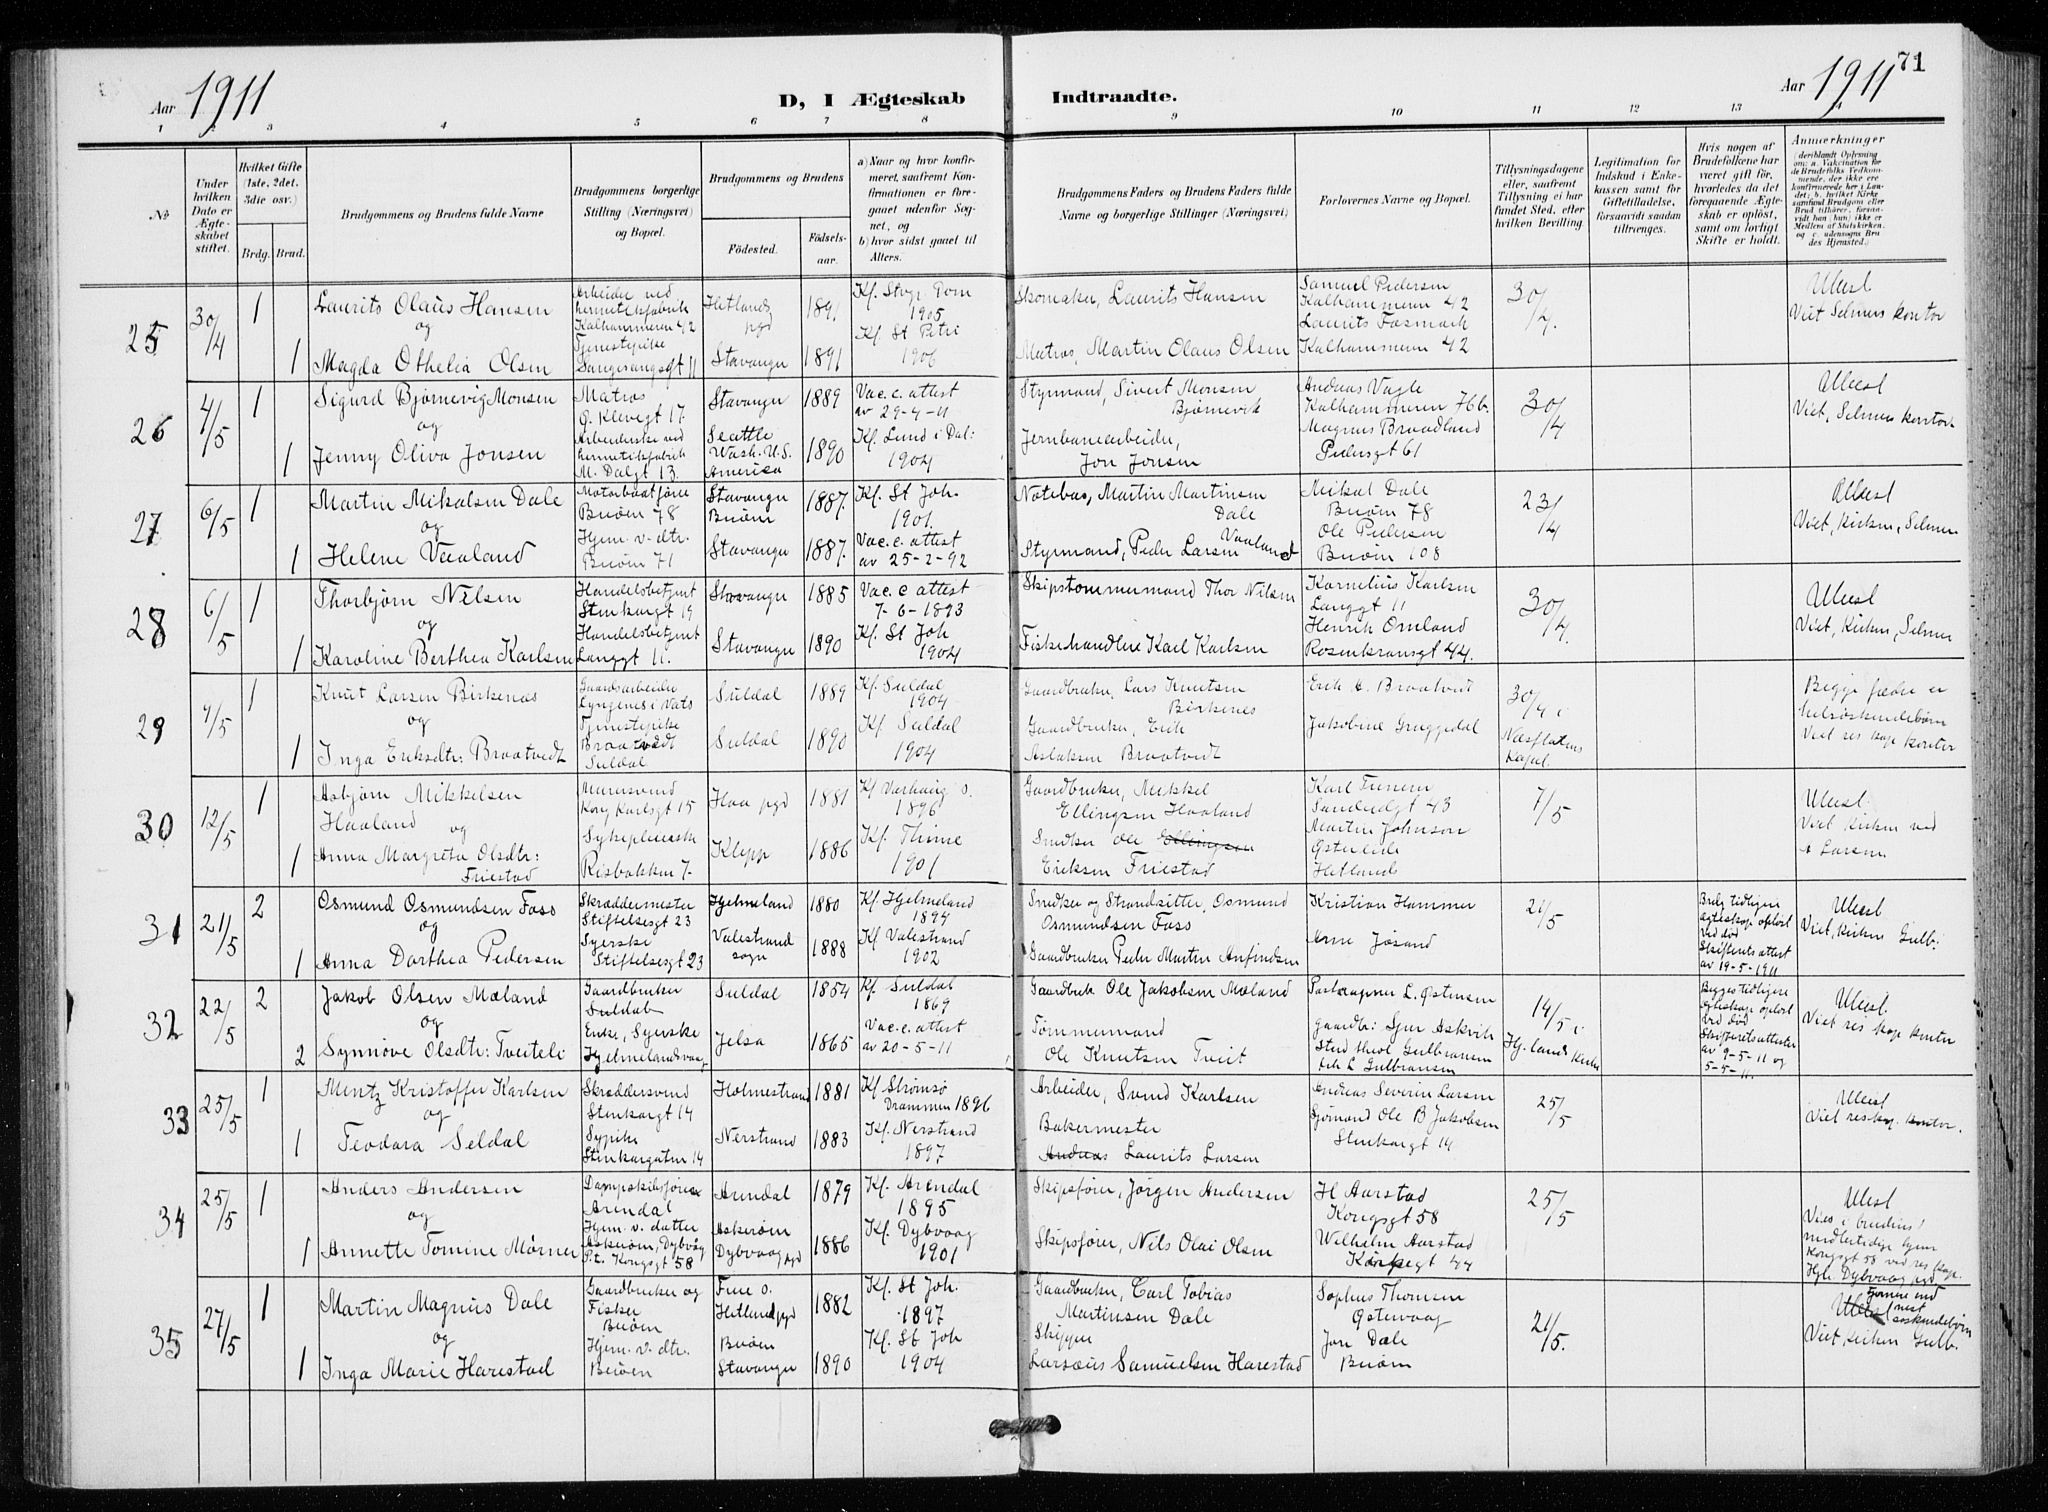 71
Aar 1911
D, I Ægteskab Indtraadte.
Aar 1911
1 2 3 4 5 6 7 8 9 10 11 12 13
No
Under hvilken Dato er Ægteskabet stiftet.
Hvilket Gifte (1ste, 2det, 3die osv.)
Brdg. Brud.
Brudgommens og Brudens fulde Navne
Brudgommens borgerlige Stilling (Næringsvei) og Bopæl.
Brudgommens og Brudens
Födested.
Födselsaar.
a) Naar og hvor konfirmeret, saafremt Konfirmationen er foregaaet udenfor Sognet, og
b) hvor sidst gaaet til Alters.
Brudgommens Faders og Brudens Faders fulde Navne og borgerlige Stillinger (Næringsvei)
Forlovernes Navne og Bopæl.
Tillysningsdagene eller, saafremt Tillysning ei har fundet Sted, efter hvilken Bevilling.
Legitimation for Indskud i Enkekassen samt for Giftetilladelse, forsaavidt saadan tiltrænges.
Hvis nogen af Brudefolkene har været gift før, hvorledes da det foregaaende Ægteskab er oplöst, samt om lovligt Skifte er holdt.
Anmærkninger
25
30/4
1
Laurits Olaus Hansen
og
1
Magda Othelia Olsen
Arbeider ved
hermetikfabrik
Kalhammeren 42
Tjenestepike
Hetlands
pgd
Stavanger
1891
1891
Kf. Stvgr. Dom
1905
Kf. St Petri
1906
Skomaker, Laurits Hansen
Matros, Martin Olaus Olsen
Samuel Pedersen
Kalhammeren 42
Laurits Fosmark
Kalhammeren 42
30/4.
Ulæst
Viet Selmers kontor
26
4/5
1
Sigurd Bjørnevig Monsen
og
1
Jenny Oliva Jonsen
Matros
Ø. Klevegt 17.
Arbeiderske ved
hermetikfabrik
M. Dalgt 13.
Stavanger
Seattle
Wash. U.S.
Amerika
1889
1890
Vac. c. attest
av 29-4-11
Kf. Lund i Dal:
1904
Styrmand, Sivert Monsen
Bjørnevik
Jernbanearbeider,
Jon Jonsen
Andreas Vagle
Kalhammeren 76b.
Magnus Braadland
Pedersgt 61
30/4
Ulæst
Viet, Selmers kontor
27
6/5
1
Martin Mikalsen Dale
og
1
Helene Vaaland
Motorbaatfører
Buøen 78
Hjem. v. dtr.
Buøen 71
Stavanger
Buøen
Stavanger
1887.
1887.
Kf. St Joh.
1901.
Vac. c. attest
av 25-2-92
Notebas, Martin Martinsen
Dale
Styrmand, Peder Larsen Vaaland
Mikal Dale
Buøen 78
Ole Pedersen
Buøen 108
23/4
Ulæst
Viet, kirken, Selmer
28
6/5
1
Thorbjørn Nilsen
og
1
Karoline Berthea Karlsen
Handelsbetjent
Stenkargt 19
Handelsbetjent
Langgt 11.
Stavanger
Stavanger
1885
1890
Vac. c attest
7-6-1893
Kf. St Joh
1904
Skipstømmermand Thor Nilsen
Fiskehandler Karl Karlsen
Kornelius Karlsen
Langgt 11
Henrik Omland
Rosenkransgt 44.
30/4.
Ulæst
Viet, Kirken, Selmer
29
7/5
1
Knut Larsen Birkenæs
og
1
Inga Eriksdtr: Braatvedt
Gaardsarbeider
Lyngenes i Vats
Tjenestepike
Braatvedt
Suldal
Suldal
Suldal
1889
1890
Kf. Suldal
1904
Kf. Suldal
1904
Gaardbruker, Lars Knutsen
Birkenes
Gaardbruker, Erik
Aslaksen Braatvedt
Erik A. Braatvedt
Jakobine Gruggedal
30/4 i
Næsflatens
Kapel.
Begge fædre er
helsøskendebørn
Viet res kap kontor
30
12/5
1
Asbjørn Mikkelsen
Haaland og
1
Anna Margreta Olsdtr:
Friestad
Murersvend
Kong Karlsgt 15
Sykepleierske
Risbakken 7.
Haa pgd
Klepp
1881
1886
Kf Varhaug s.
1896
Kf. Thime
1901
Gaardbruker, Mikkel
Ellingsen Haaland
Snedker Ole Ellingsen
Eriksen Friestad
Karl Tunem
Sandeidgt 43
Martin Johnson
Østerlide
Hetland
7/5
Ulæst
Viet kirken ved
A Larsen
31
21/5
2
Osmund Osmundsen Foss
og
1
Anna Dorthea Pedersen
Skræddermester
Stiftelsesgt 23
Syerske
Stiftelsesgt 23
Hjelmeland
Valestrand
sogn
1880
1888
Kf. Hjelmeland
1894
Kf Valestrand
1902
Snedker og Strandsitter, Osmund
Osmundsen Foss
Gaardbruker Peder Martin Anfindsen
Kristian Hammer
Arne Jøsand
21/5
Brdg tidligere
egteskap opløst
ved død
Skifterets attest
av 19-5-1911
Ulæst
Viet, Kirken Gulb.
32
22/5
2
Jakob Olsen Mæland
og
2
Synnøve Olsdtr: Tveiteli
Gaardbruker
Suldal
Enke, Syerske
Hjelmelandsvaag
Suldal
Jelsa
1854
1865
Kf. Suldal
1869
Vac. c. attest
av 20-5-11
Gaardbruk Ole Jakobsen Mæland
Tømmermand
Ole Knutsen Tveit
Postaapner L. Østensen
Gaardb: Sjur Askvik
Stud theol Gulbransen
frk L Gulbransen
14/5 i
Hj.lands Kirke
Begges tidligere
egteskap opløst
ved død
Skifteretsattester
av 9-5-11 og
5-5-11.
Ulæst
Viet res kap kontor
33
25/5
1
Mentz Kristoffer Karlsen
og
1
Teodora Seldal
Skræddersvend
Stenkargt 14
Sypike
Stenkargaten 14
Holmestrand
Nerstrand
1881
1883
Kf. Strømsø
Drammen 1896
Kf. Nerstrand
1897
Arbeider, Svend Karlsen
Bakermester
Andreas Laurits Larsen
Andreas Severin Larsen
Sjømand Ole B Jakobsen
Stenkargt 14
25/5
Ulæst
Viet res kap. kontor.
34
25/5
1
Anders Andersen
og
1
Annette Tomine Mørner
Dampskibsfører
Arendal
Hjem. v. datter
Askerøen, Dybvåg
P.t. Kongsgt 58
Arendal
Askerøen
Dybvaag pgd
1879
1886
Kf. Arendal
1895
Kf. Dybvaag
1901
Skipsfører, Jørgen Andersen
Skipsfører, Nils Olai Olsen
H Aarstad
Kongsgt 58
Wilhelm Aarstad
25/5
Ulæst
Viet i brudens
midlertidige hjem
Kongsgt 58 ved res kap.
Hjh. Dybvaag pgd
35
27/5
1
Martin Magnus Dale
og
1
Inga Marie Harestad
Gaardbruker og
Fisker
Buøen
Hjem. v. dtr.
Buøen
Frue s.
Hetland pgd
Buøen
Stavanger
1882
1890
Kf. St Joh.
1897
Kf. St Joh
1904
Gaardbruker, Carl Tobias
Martinsen Dale
Skipper
Larsæus Samuelsen Harestad
Sophus Thomsen
Østervaag
Jon Dale
Buøen
21/5.
Ulæst
Viet, kirken Gulb.